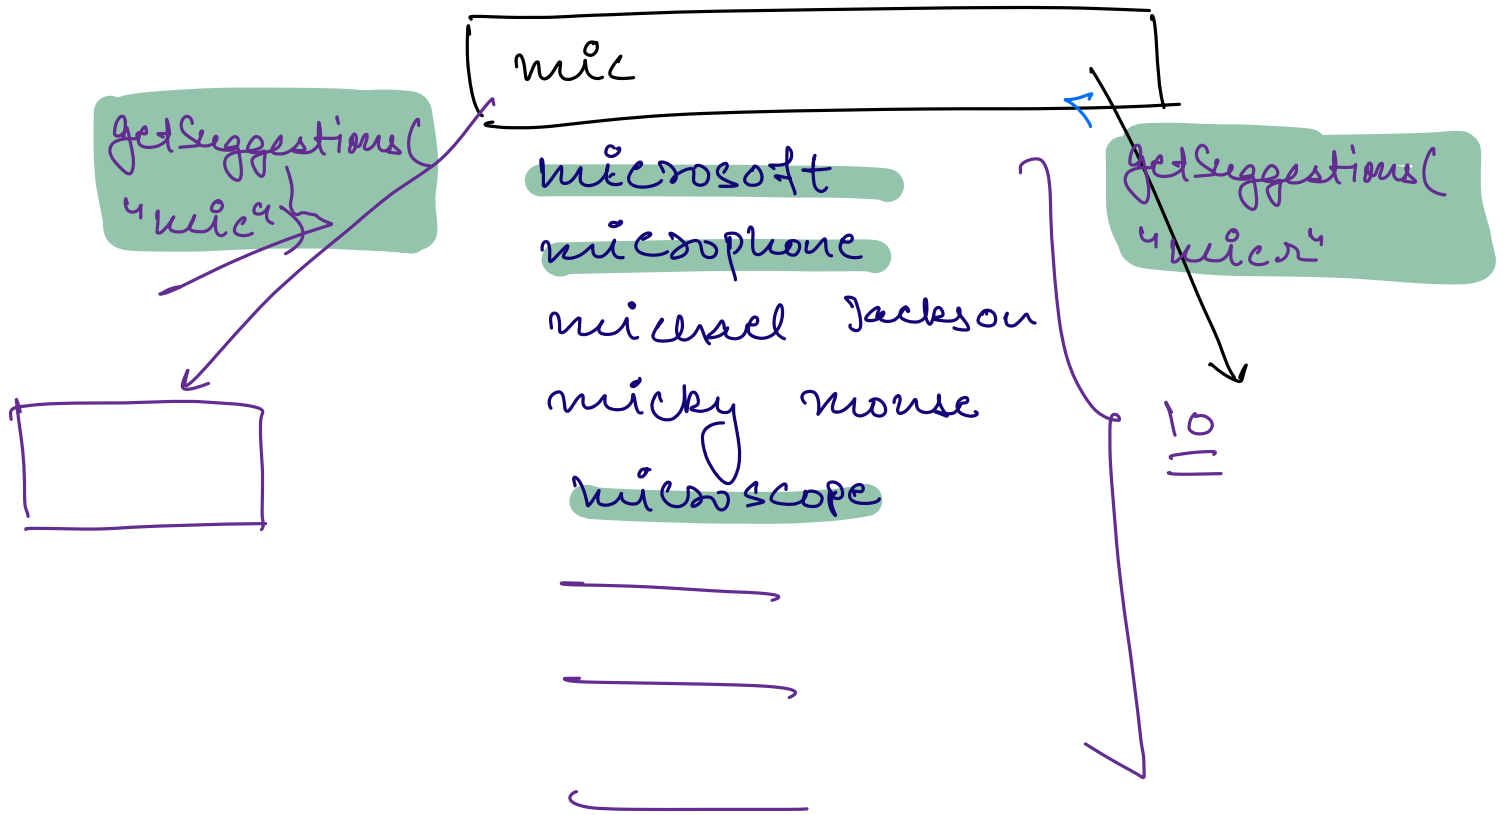 mic
getSuggestions(
"mic")
microsoft
microphone
michael Jackson
micky mouse
microscope
getSuggestions(
"micr"
10